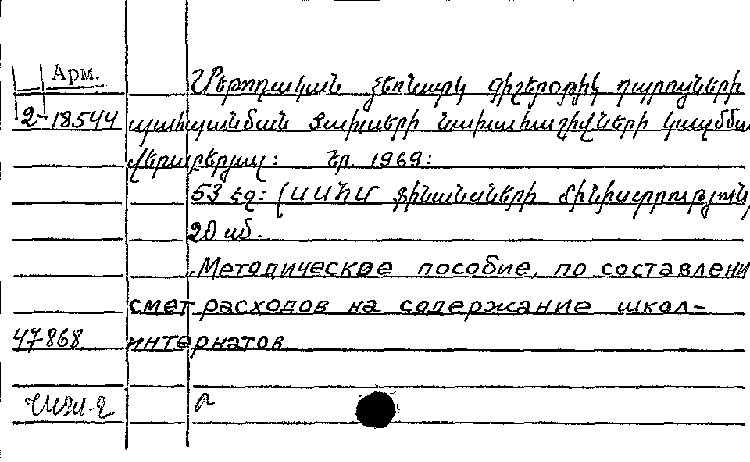 Арм.
Մեթոդական ձեռնարկ գիշերօթիկ դպրոցների
2-18544 պահպանման ծախսերի նախահաշիվների կազմմա
վերաբերյալ: Եր. 1969:
53 էջ: (ՍՍՀՄ ֆինանսների մինիստրություն)
20 աբ.
Методическое пособие, по составлени
смет расходов на содержание школ-
47868 интернатов